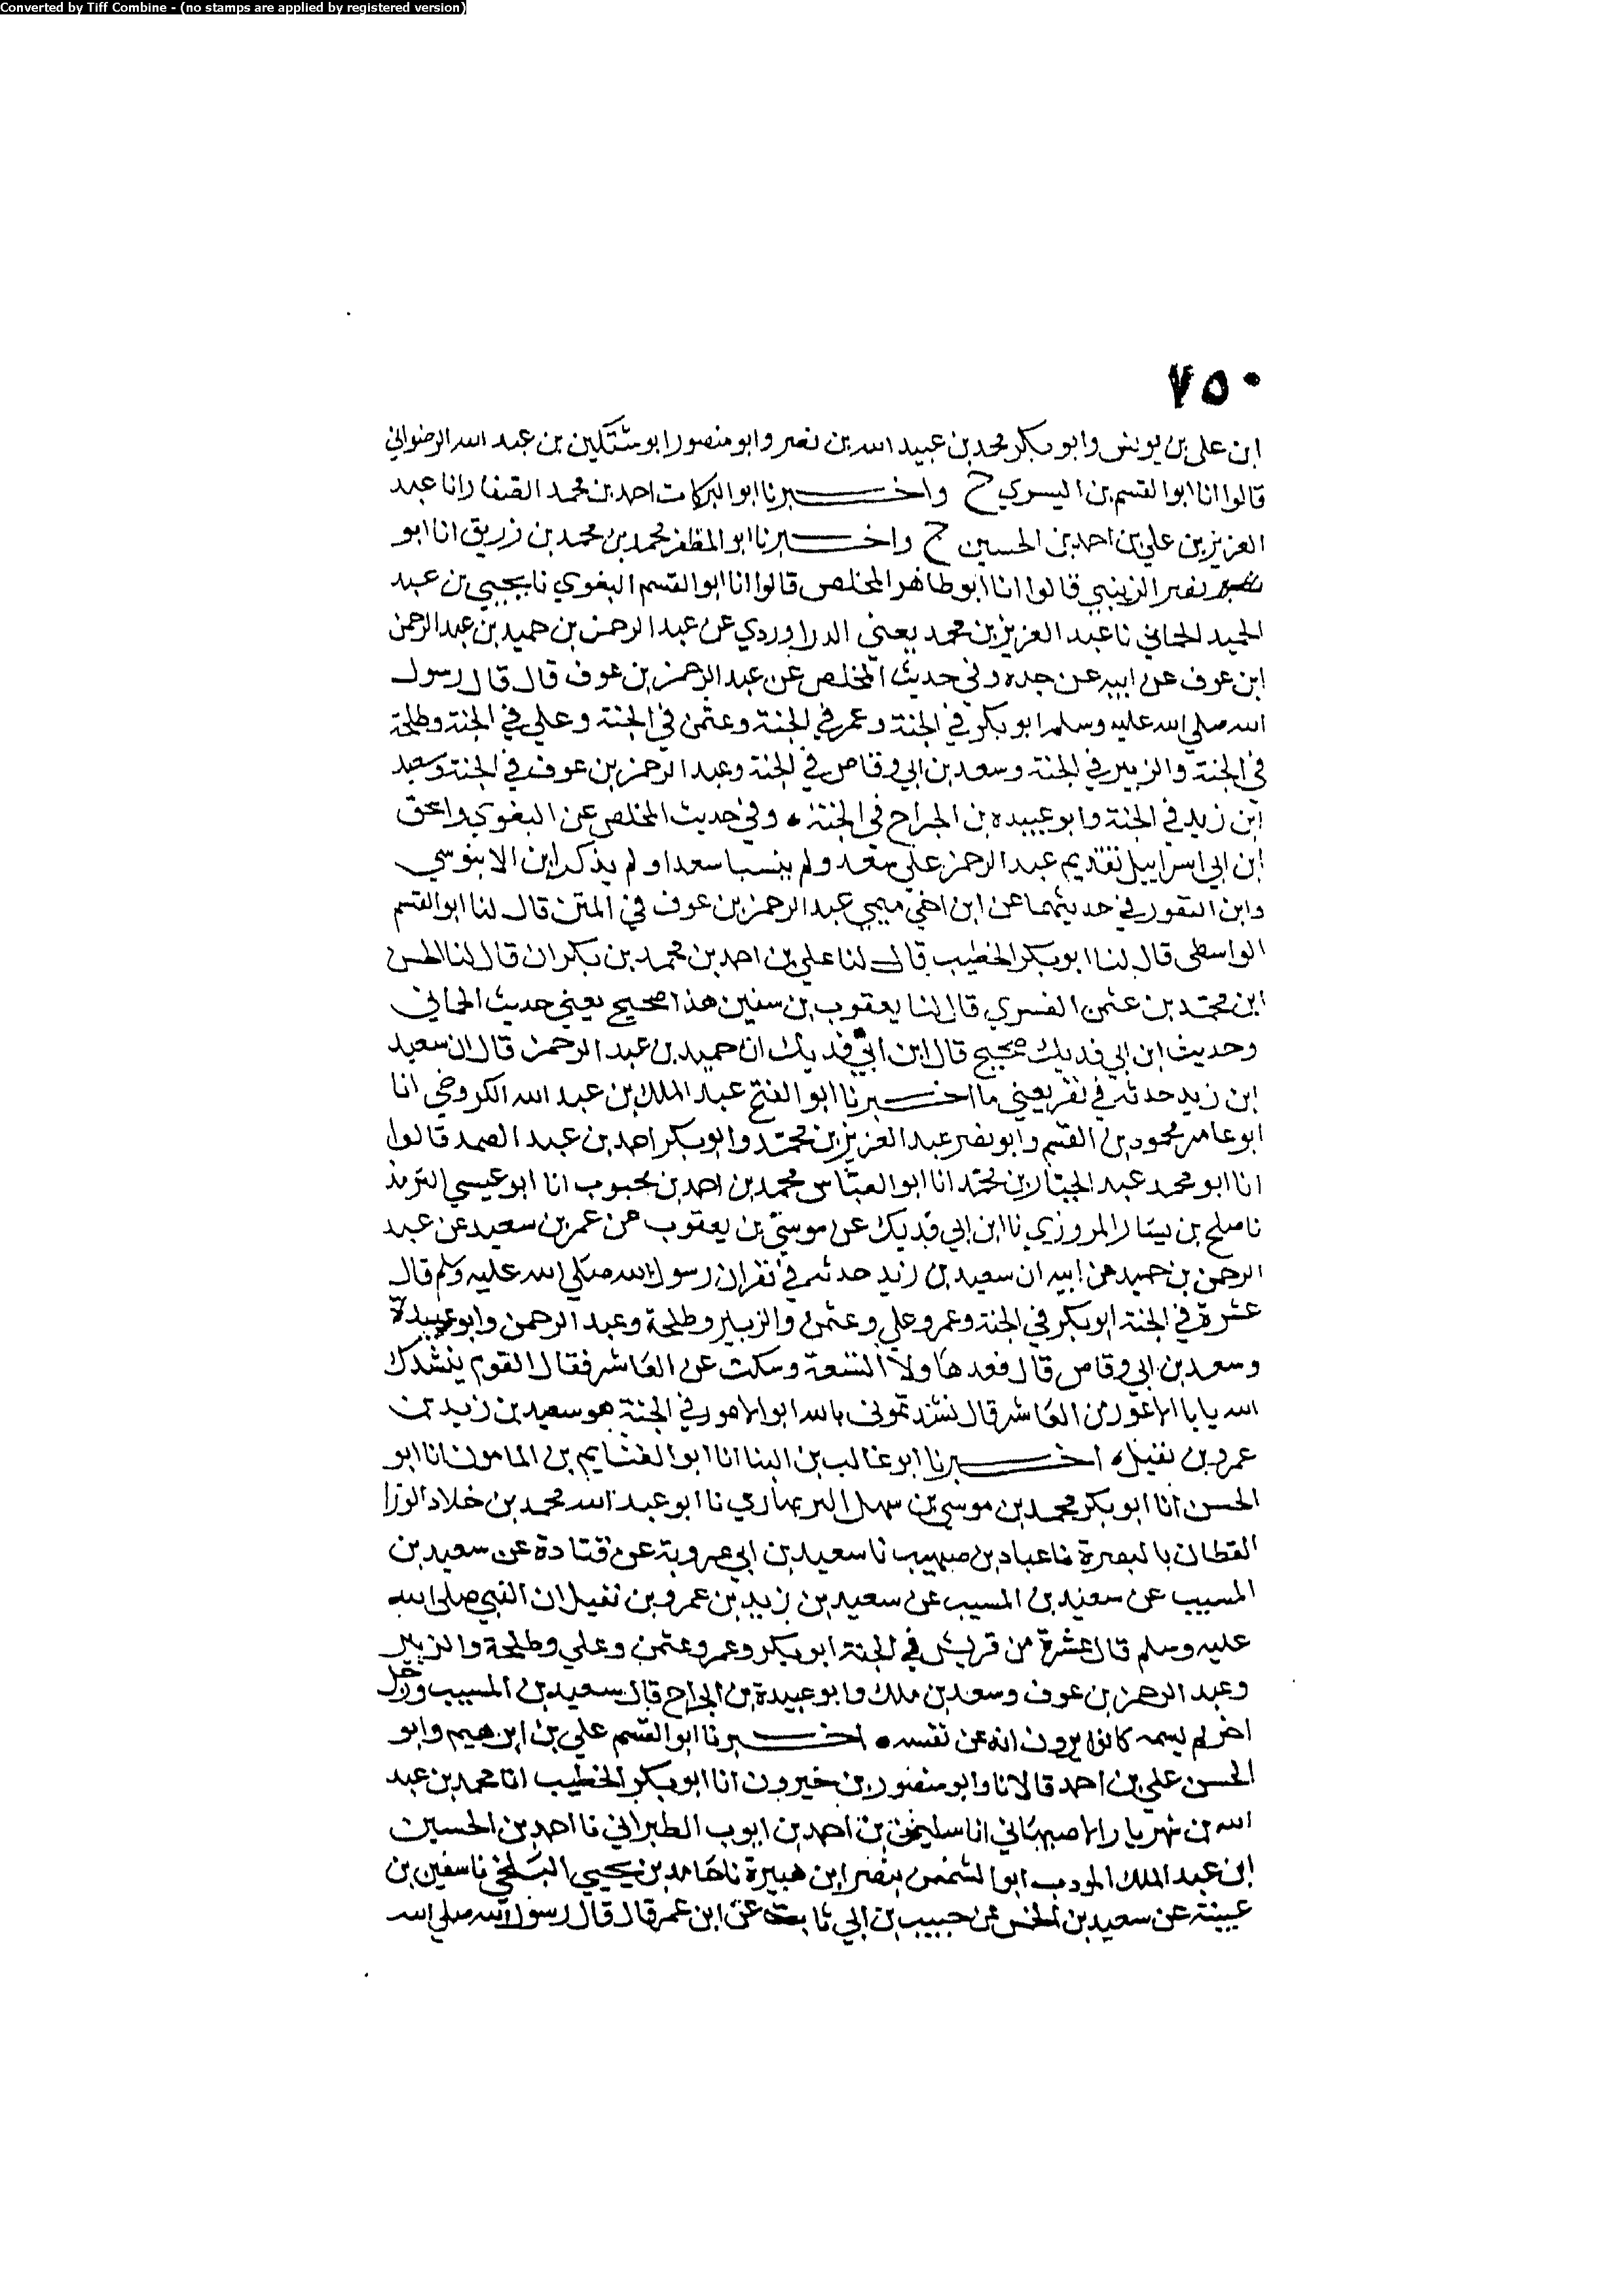 Converted by Tiff Combine - (no stamps are applied by registered version)
٧٥٠
ابن علي بن يونس وابو بكر محمد بن عبيد الله بن نصر وابو منصور ابو شتكين بن عبد الله الرضواني
قالوا انا ابو القسم بن اليسري ح واخبرنا ابو البركات احمد بن محمد الصفار انا عبد
العزيز بن علي بن احمد بن الحسين ح واخبرنا ابو المظفر محمد بن محمد بن زريق انا ابو
نصر الزينبي قالوا انا ابو طاهر المخلص قالوا انا ابو القسم البغوي نا يحيي بن عبد
الحميد الحماني نا عبد العزيز بن محمد يعني الدراوردي عن عبد الرحمن بن حميد بن عبد الرحمن
ابن عوف عن ابيه عن جده وفي حديث المخلص عن عبد الرحمن بن عوف قال قال رسول
الله صلي الله عليه وسلم ابو بكر في الجنة وعمر في الجنة وعثمن في الجنة وعلي في الجنة وطلحة
في الجنة والزبير في الجنة وسعد بن ابي وقاص في الجنة وعبد الرحمن بن عوف في الجنة وسعيد
ابن زيد في الجنة وابو عبيده بن الجراح في الجنة وفي حديث المخلص عن البغوي واسحق
ابن ابي اسراييل تقديم عبد الرحمن علي سعد ولم ينسبا سعدا ولم يذكر ابن الابنوسي
وابن النقور في حديثهما عن ابن اخي ميمي عبد الرحمن بن عوف في المتن قال لنا ابو القسم
الواسطي قال لنا ابو بكر الخطيب قال لنا علي بن احمد بن محمد بن بكران قال لنا الحسن
ابن محمد بن عثمن الفسوي قال لنا يعقوب بن سفين هذا صحيح يعني حديث الحماني
وحديث ابن ابي فديك صحيح قال ابن ابي فديك ان حميد بن عبد الرحمن قال ان سعيد
ابن زيد حدثه في نفر يعني ما اخبرنا ابو الفتح عبد الملك بن عبد الله الكروخي انا
ابو عامر محمود بن القسم وابو نصر عبد العزيز بن محمد وابو بكر احمد بن عبد الصمد قالوا
انا ابو محمد عبد الجبار بن محمد انا ابو العباس محمد بن احمد بن محبوب انا ابو عيسي الترمذ
نا صلح بن مسمار المروزي نا ابن ابي فديك عن موسي بن يعقوب عن عمر بن سعيد عن عبد
الرحمن بن حميد عن ابيه ان سعيد بن زيد حدثه في نفر ان رسول الله صلي الله عليه وسلم قال
عشرة في الجنة ابو بكر في الجنة وعمر وعلي وعثمن والزبير وطلحة وعبد الرحمن وابو عبيدة
وسعد بن ابي وقاص قال فعد هاولا التسعة وسكت عن العاشر فقال القوم ينشدك
الله يابا الاعور من العاشر قال نشدتموني بالله ابو الاعور في الجنة هو سعيد بن زيد بن
عمرو بن نفيل اخبرنا ابو غالب بن البنا انا ابو الغنايم بن المامون انا ابو
الحسن انا ابو بكر محمد بن موسي بن سهل البربهاري نا ابو عبد الله محمد بن خلاد الوزا
القطان بالبصرة نا عباد بن صهيب نا سعيد بن ابي عروبة عن قتادة عن سعيد بن
المسيب عن سعيد بن المسيب عن سعيد بن زيد بن عمرو بن نفيل ان النبي صلي الله
عليه وسلم قال عشرة من قريش في الجنة ابو بكر وعمر وعثمن وعلي وطلحة والزبير
وعبد الرحمن بن عوف وسعد بن ملك وابو عبيدة بن الجراح قال سعيد بن المسيب ورجل
اخر لم يسمه كانوا يرون انه عن نفسه اخبرنا ابو القسم علي بن ابرهيم وابو
الحسن علي بن احمد قالا نا وابو منصور بن خيرون انا ابو بكر الخطيب انا محمد بن عبد
الله بن شهريار الاصبهاني انا سليمن بن احمد بن ايوب الطبراني نا احمد بن الحسين
ابن عبد الملك المودب ابو الشمس بقصر ابن هبيرة نا حامد بن يحيي البلخي نا سفين بن
عيينة عن سعيد بن الخمس عن حبيب بن ابي ثابت عن ابن عمر قال قال رسول الله صلي الله